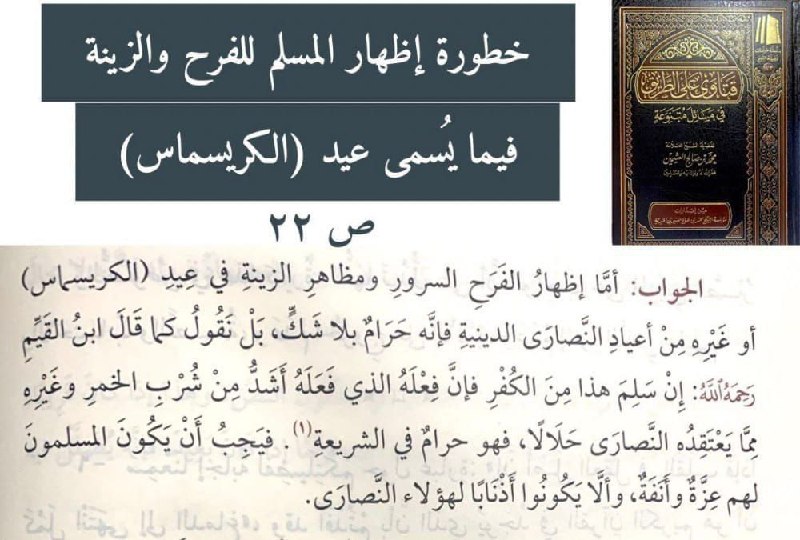 خطورة إظهار المسلم للفرح والزينة
فيما يُسمى عيد (الكريسماس)
ص ٢٢
فتاوى على الطريق
في مسائل متنوعة
محمد بن صالح العثيمين
الجواب: أمَّا إظهارُ الفَرَحِ السرورِ ومظاهرِ الزينةِ في عِيدِ (الكريسماس)
أو غَيْرِهِ مِنْ أعيادِ النَّصارَى الدينيةِ فإنَّه حَرَامٌ بلا شَكٍّ، بَلْ نَقُولُ كما قَالَ ابنُ القَيِّمِ
رَحِمَهُ اللَّهُ: إنْ سَلِمَ هذا مِنَ الكُفْرِ فإنَّ فِعْلَهُ الذي فَعَلَهُ أَشَدُّ مِنْ شُرْبِ الخمرِ وغَيْرِهِ
مِمَّا يَعْتَقِدُه النَّصارَى حَلَالًا، فهو حرامٌ في الشريعةِ(١). فيَجِبُ أَنْ يَكُونَ المسلمونَ
لهم عِزَّةٌ وأَنَفَةٌ، وأَلَّا يَكُونُوا أَذْنَابًا لهؤلاء النَّصارَى.